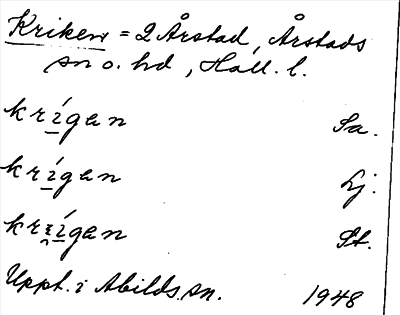 Kriken = 2 Årstad, Årstads
sn o. hd, Hall. l.
krígan Sa.
krígan Lj.
krɪ̯ígan St.
Uppt. i Abilds sn. 1948